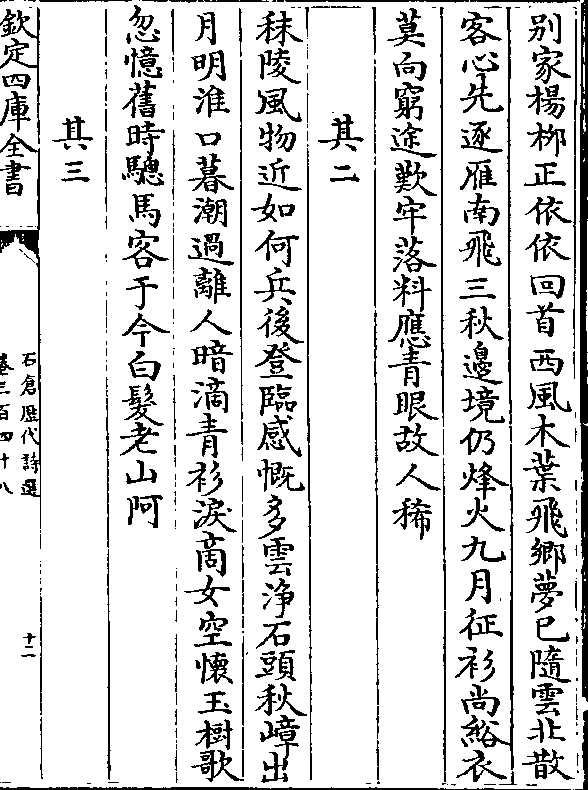 别家楊柳正依依回首西風木葉飛鄉夢已隨雲北散
客心先逐雁南飛三秋邊境仍烽火九月征衫尚綌衣
莫向窮途歎牢落料應青眼故人稀
其二
秣陵風物近如何兵後登臨感慨多雲浄石頭秋嶂出
月明淮口暮潮過離人暗滴青衫淚商女空懷玉樹歌
忽憶舊時驄馬客于今白髮老山阿
其三
欽定四庫全書
石倉歷代詩選
卷三百四十八
十二